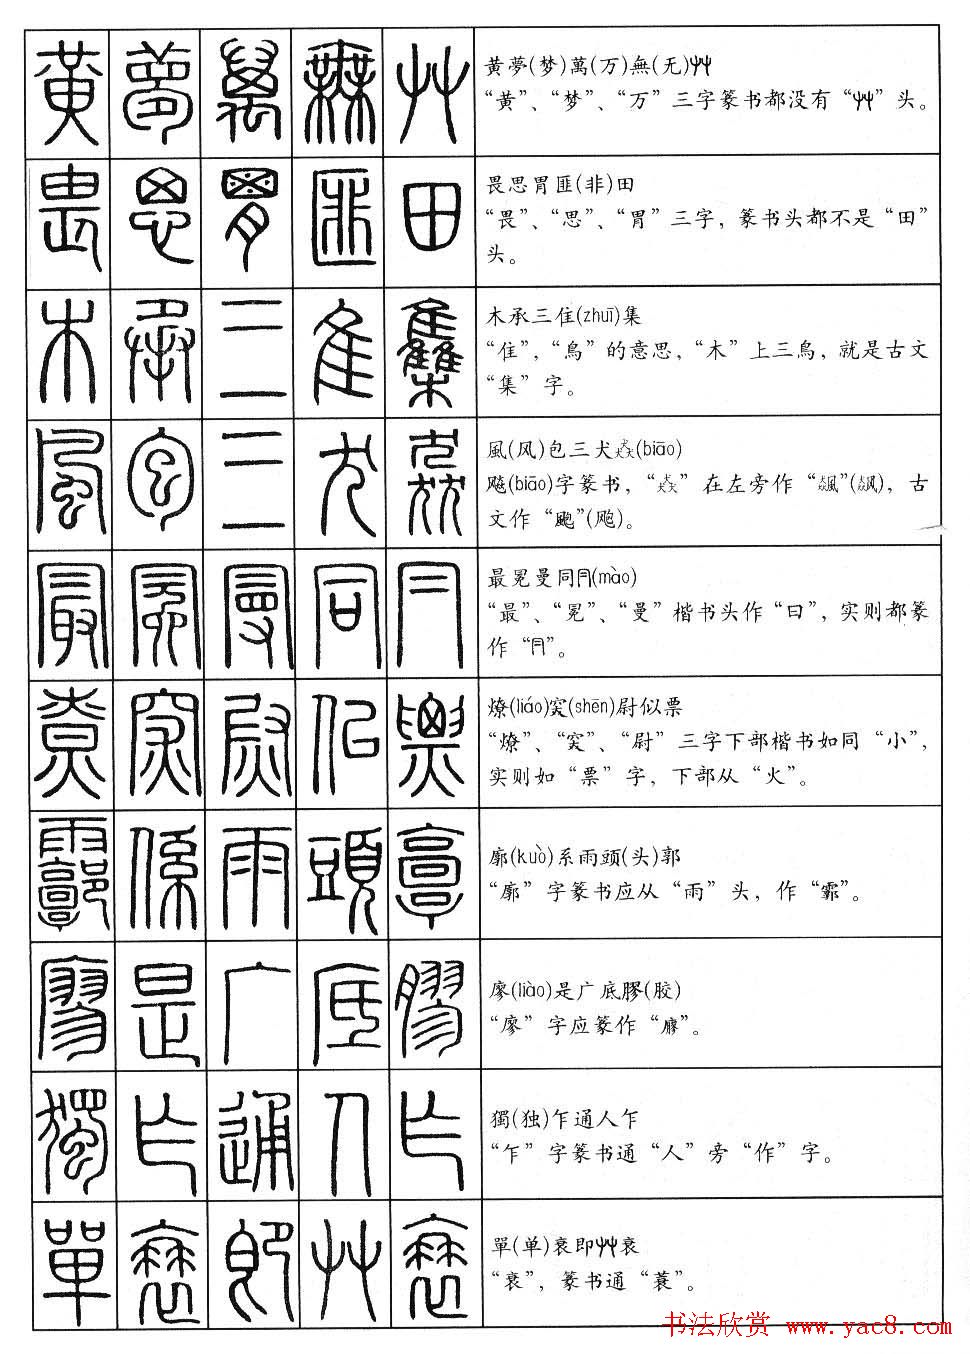 黄夢(梦)萬(万)無(无)艸
“黄”、“梦”、“万”三字篆书都没有“艸”头。
畏思胃匪(非)田
“畏”、“思”、“胃”三字，篆书头都不是“田”
头。
木承三隹(zhuī)集
“隹”，“鳥”的意思，“木”上三鳥，就是古文
“集”字。
風(风)包三犬猋(biāo)
飚(biāo)字篆书，“猋”在左旁作“飆”(飙)，古
文作“颮”(飑)。
最冕曼同冃(mào)
“最”、“冕”、“曼”楷书头作“曰”，实则都篆
作“冃”。
燎(liáo)穾(shēn)尉似票
“燎”、“穾”、“尉”三字下部楷书如同“小”，
实则如“票”字，下部从“火”。
廓(kuò)系雨頭(头)郭
“廓”字篆书应从“雨”头，作“霩”。
廖(liào)是广底膠(胶)
“廖”字应篆作“”。
獨(独)乍通人乍
“乍”字篆书通“人”旁“作”字。
單(单)衰即艸衰
“衰”，篆书通“蓑”。
书法欣赏 www.yac8.com